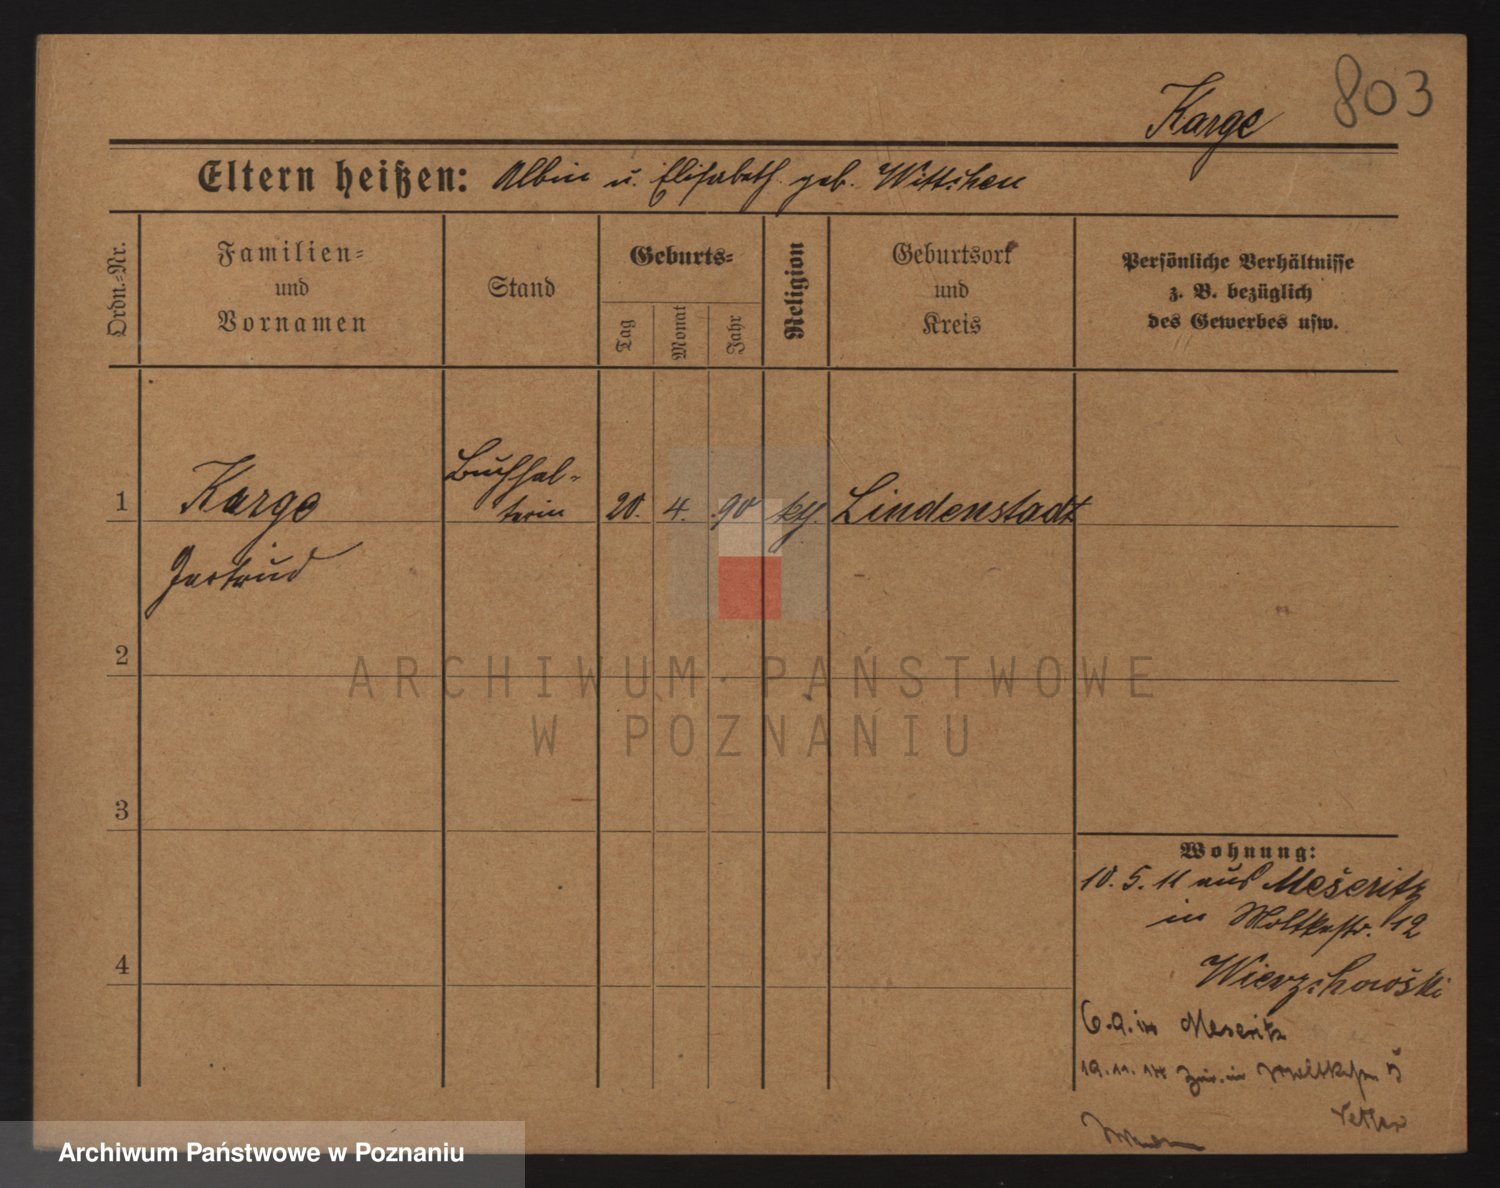 803
Karge
Eltern heißen: Albin u. Elisabeth geb. Wittchen
Ordn.=Nr.
Familien=
und
Vornamen
Stand
Geburts=
Tag
Monat
Jahr
Religion
Geburtsort
und
Kreis
Persönliche Verhältnisse
z. B. bezüglich
des Gewerbes usw.
1
Karge
Gertrud
Buchhal-
terin
20.
4.
90
kth.
Lindenstadt
2
3
4
Wohnung:
10. 5. 11 aus Meseritz
in Moltkestr. 12
6. a. in Meseritz
19. 11. in Moltkestr. 5
ARCHIWUM PAŃSTWOWE
W POZNANIU
Archiwum Państwowe w Poznaniu